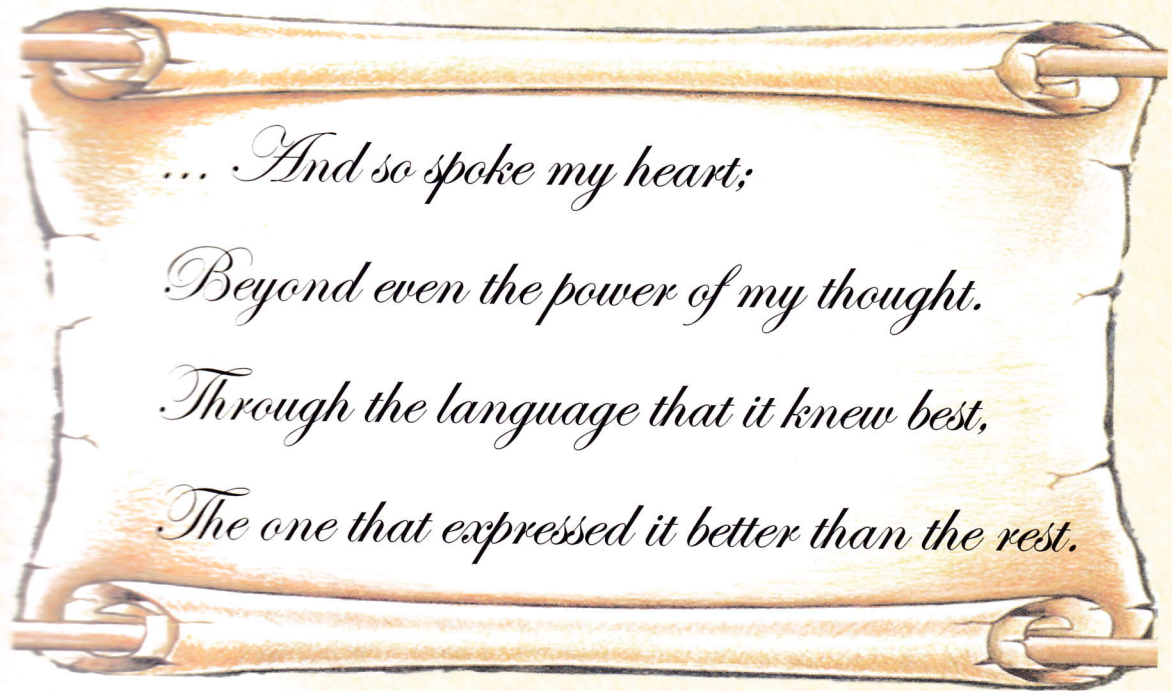 ... And so spoke my heart;
Beyond even the power of my thought.
Through the language that it knew best,
The one that expressed it better than the rest.